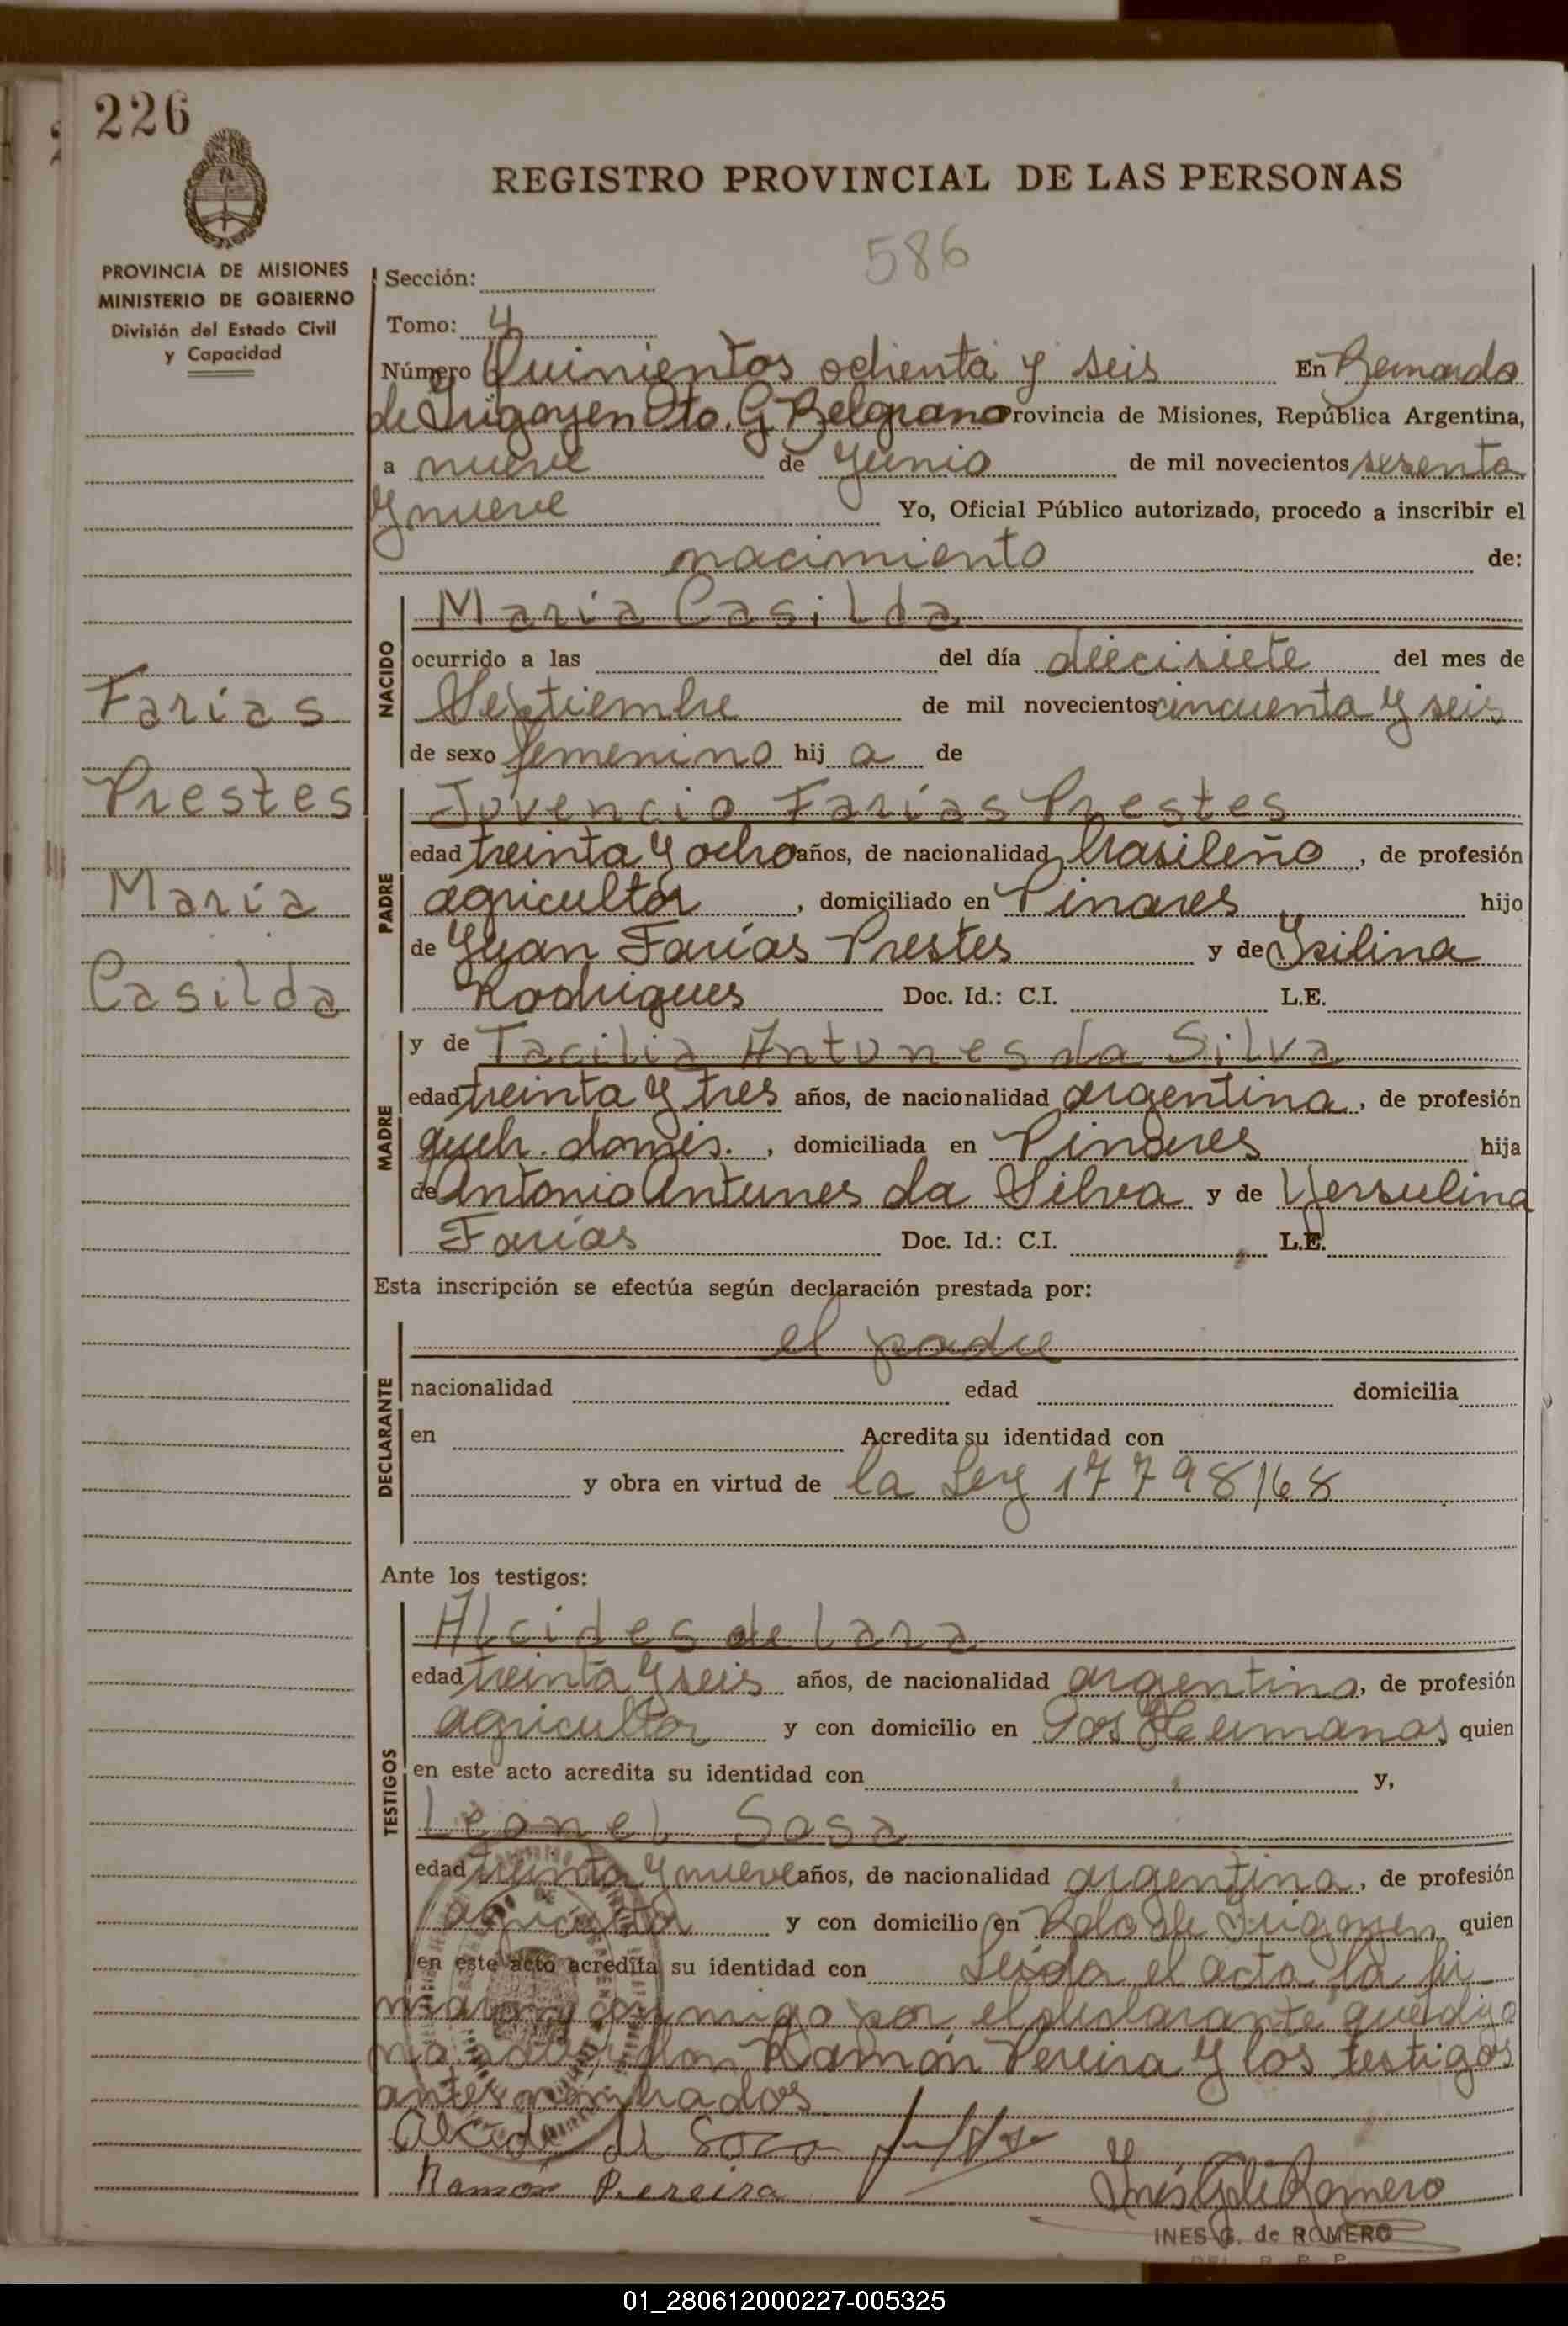 226
REGISTRO PROVINCIAL DE LAS PERSONAS
586
PROVINCIA DE MISIONES
MINISTERIO DE GOBIERNO
División del Estado Civil
y Capacidad
Sección:
Tomo: 4
Número Quinientos ochenta y seis En Bernardo
de Irigoyen Dto. G Belgrano Provincia de Misiones, República Argentina,
a nueve de Junio de mil novecientos sesenta
y nueve Yo, Oficial Público autorizado, procedo a inscribir el
nacimiento de:
NACIDO
María Casilda
ocurrido a las del día diecisiete del mes de
Septiembre de mil novecientos cincuenta y seis
de sexo femenino hij a de
Farías
Prestes
María
Casilda
PADRE
Jovencio Farías Prestes
edad treinta y ocho años, de nacionalidad brasileño, de profesión
agricultor, domiciliado en Pinares hijo
de Juan Farías Prestes y de Isilina
Rodrigues Doc. Id.: C.I. L.E.
MADRE
y de Tacilia Antunes da Silva
edad treinta y tres años, de nacionalidad argentina, de profesión
queh. domés., domiciliada en Pinares hija
de Antonio Antunes da Silva y de Yersulina
Farías Doc. Id.: C.I. L.E.
Esta inscripción se efectúa según declaración prestada por:
DECLARANTE
el padre
nacionalidad edad domicilia
en Acredita su identidad con
y obra en virtud de la Ley 17798/68
Ante los testigos:
TESTIGOS
Alcides de Lara
edad treinta y seis años, de nacionalidad argentina, de profesión
agricultor y con domicilio en Dos Hermanas quien
en este acto acredita su identidad con y,
Leonel Sosa
edad treinta y nueve años, de nacionalidad argentina, de profesión
agricultor y con domicilio en Bdo de Irigoyen quien
en este acto acredita su identidad con Leída el acta la fir
man conmigo por el declarante que dijo
no saber don Ramón Pereira y los testigos
antes nombrados
Ramon Pereira
INES G. de ROMERO
01_280612000227-005325